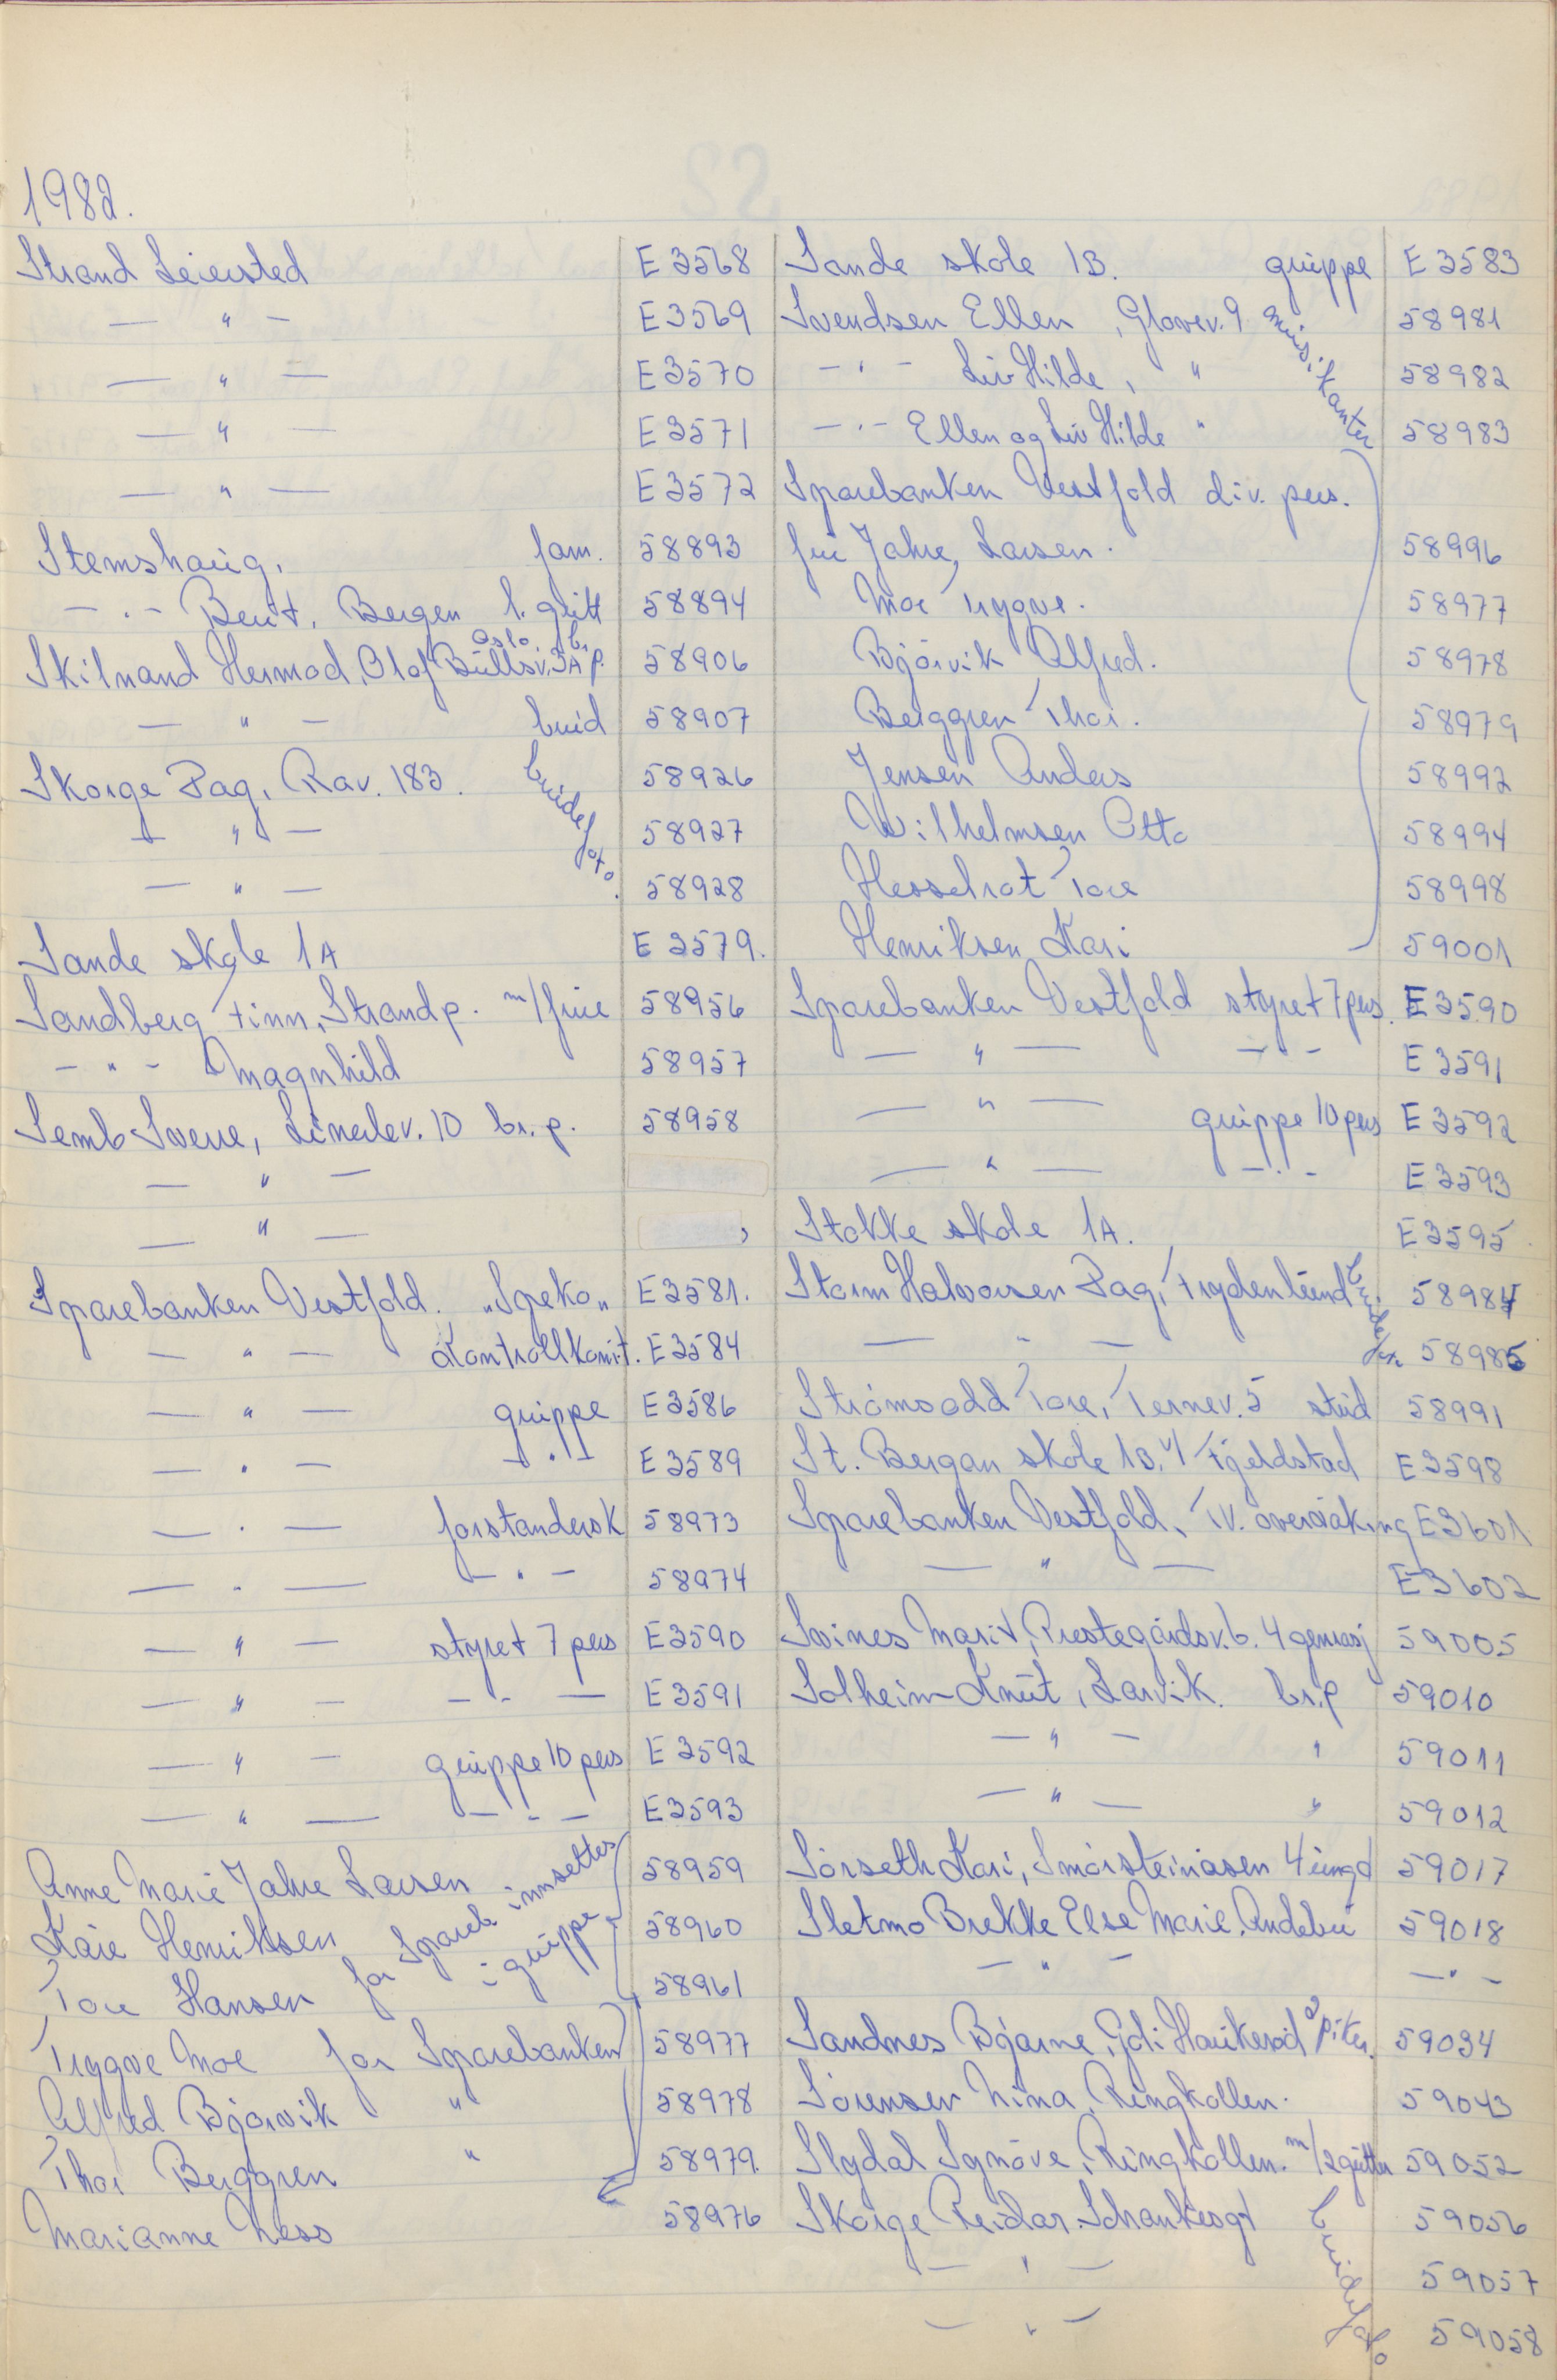 1982.
Strand Leiersted E3568
— " — E3569
— " — E3570
— " — E3571
— " — E3572
Stemshaug, fam. 58893
— " — Berit, Bergen l. gutt 58894
Skilnand Hermod, Olof Bullsv. 3A Oslo br.p. 58906
— " — brud 58907
Skorge Dag, Rav. 183. brudefoto. 58926
— " — 58927
— " — 58928
Sande skole 1A E3579.
Sandberg Finn, Strandp. m/frue 58956
— " — Magnhild 58957
Semb Sverre, Linerlev. 10 br.p. 58958
— " —
— " —
Sparebanken Vestfold. "Speko" E3581.
— " — Kontrollkomit. E3584
— " — gruppe E3586
— " — — " — E3589
— " — forstandersk 58973
— " — — " — 58974
— " — styret 7 pers E3590
— " — — " — E3591
— " — gruppe 10 pers E3592
— " — — " — E3593
Anne Marie Jahre Larsen 58959
Kåre Henriksen 58960
Tore Hansen 58961
for Spareb innsettes
i gruppe
Trygve Moe for Sparebanken 58977
Alfred Bjørvik " 58978
Thor Berggren " 58979.
Marianne Ness 58976
Sande skole 1B. gruppe E3583
Svendsen Ellen, Glover. 9 musikanter 58981
— " — Liv Hilde, " 58982
— " — Ellen og Liv Hilde " 58983
Sparebanken Vestfold div. pers.
fru Jahre Larsen. 58996
Moe Trygve. 58977
Bjørvik Alfred. 58978
Berggren Thor. 58979
Jensen Anders 58992
Wilhelmsen Otto 58994
Hesselrot Tore 58998
Henriksen Kari 59001
Sparebanken Vestfold styret 7 pers. E3590
— " — — " — E3591
— " — gruppe 10 pers E3592
— " — — " — E3593
Stokke skole 1A. E3595
Storm Halvorsen Dag, Frydenlund brudefoto 58984
— " — 58985
Strømsodd Tore, Ternev. 5 stud 58991
St. Bergan skole 1B. v/ Fjeldstad E3598
Sparebanken Vestfold, TV. overvåking E3601
— " — E3602
Svines Marit, Prestegårdsv. 6. 4 generasj 59005
Solheim Knut, Larvik. br.p 59010
— " — " 59011
— " — " 59012
Sørseth Kari, Smørsteinåsen 4 ungd 59017
Sletmo Brekke Else Marie, Andebu 59018
— " — — " —
Sandnes Bjarne, Gdi Haukerød 2 piker. 59034
Sørensen Nina, Ringkollen. 59043
Slydal Synøve, Ringkollen. m/2 gutter 59052
Skorge Reidar, Schankesgt brudefoto 59056
— " — 59057
— " — 59058